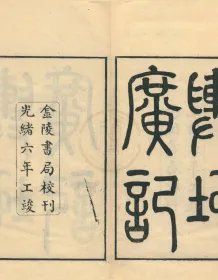 廣記
金陵書局校刊
光緒六年工竣